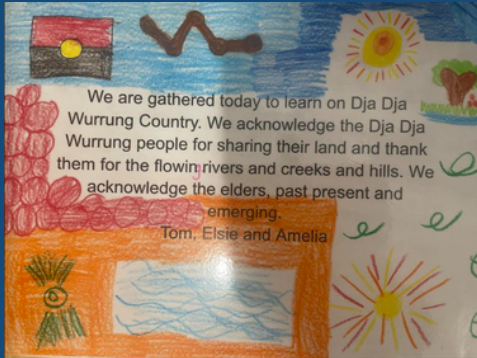 We are gathered today to learn on Dja Dja
Wurrung Country. We acknowledge the Dja Dja
Wurrung people for sharing their land and thank
them for the flowing rivers and creeks and hills. We
acknowledge the elders, past present and
emerging.
Tom, Elsie and Amelia